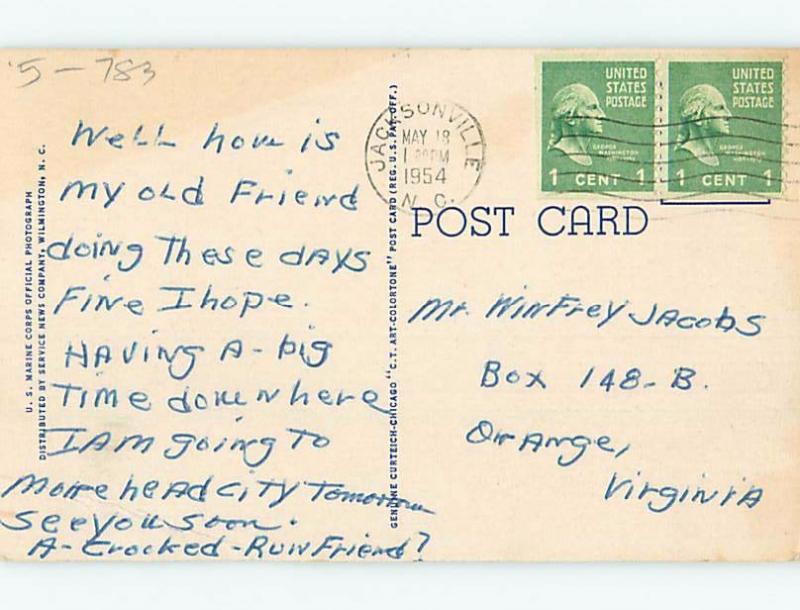 5-783
Well how is
my old Friend
doing These days
Fine I hope.
HAVING A-big
Time down here
I AM going to
Morehead City Tomorrow
See you soon.
A-Crooked-Run Friend?
U. S. MARINE CORPS OFFICIAL PHOTOGRAPH
DISTRIBUTED BY SERVICE NEWS COMPANY, WILMINGTON, N. C.
GENUINE CURTEICH-CHICAGO "C.T. ART-COLORTONE" POST CARD (REG. U. S. PAT. OFF.)
JACKSONVILLE
MAY 18
PM
1954
N. C.
UNITED
STATES
POSTAGE
GEORGE
WASHINGTON
1 CENT 1
UNITED
STATES
POSTAGE
GEORGE
WASHINGTON
1 CENT 1
POST CARD
Mr. Winfrey Jacobs
Box 148-B.
Orange,
Virginia